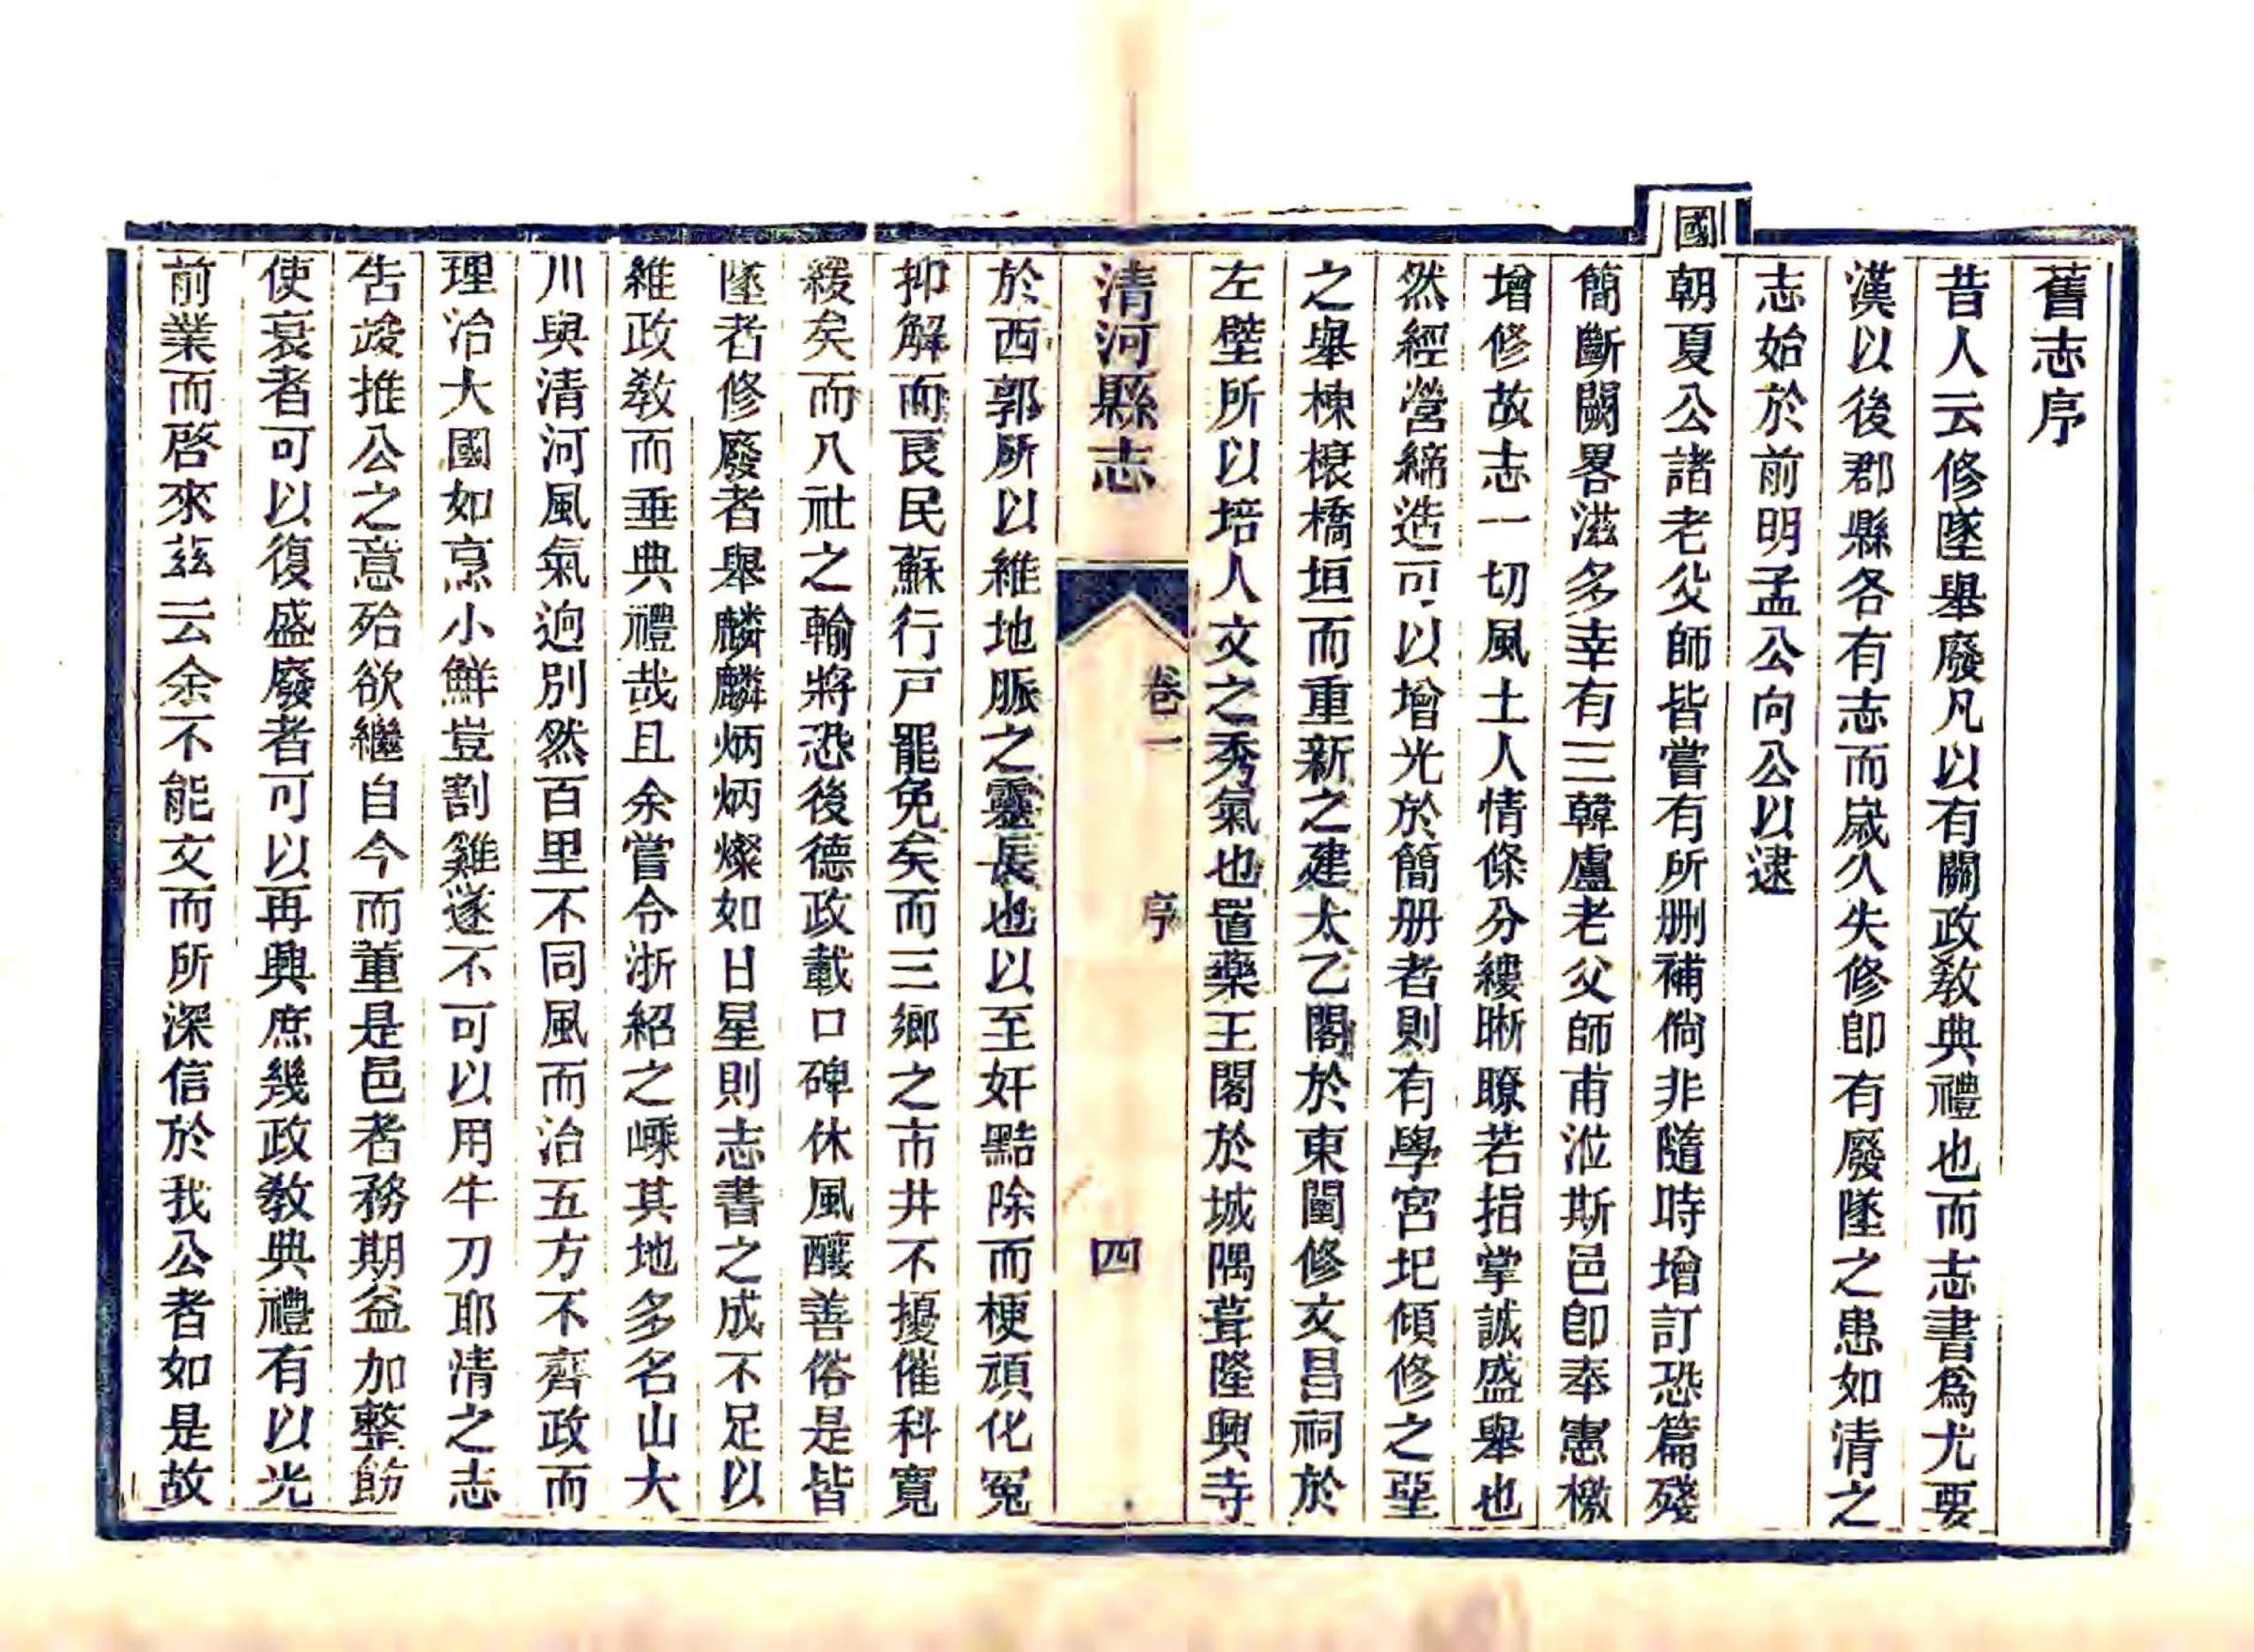 舊志序
昔人云修墜舉廢凡以有關政敎典禮也而志書爲尤要
漢以後郡縣各有志而嵗久失修卽有廢墜之患如清之
志始於前明孟公向公以逮
國朝夏公諸老父師皆嘗有所刪補倘非隨時增訂恐篇殘
簡斷闕畧滋多幸有三韓盧老父師甫涖斯邑卽奉憲檄
增修故志一切風土人情條分縷晰瞭若指掌誠盛舉也
然經營締造可以增光於簡册者則有學宮圮傾修之堊
之舉棟榱橋垣而重新之建太乙閣於東闉修文昌祠於
左壁所以培人文之秀氣也置藥王閣於城隅葺隆興寺
清河縣志 卷一 序 四
於西郭所以維地脈之靈長也以至奸黠除而梗頑化冤
抑解而良民蘇行戸罷免矣而三鄉之市井不擾催科寬
緩矣而八社之輸將恐後德政載口碑休風釀善俗是皆
墜者修廢者舉麟麟炳炳燦如日星則志書之成不足以
維政敎而垂典禮哉且余嘗令浙紹之嵊其地多名山大
川與清河風氣迥別然百里不同風而治五方不齊政而
理治大國如烹小鮮豈割雞遂不可以用牛刀耶清之志
告竣推公之意殆欲繼自今而董是邑者務期益加整飭
使衰者可以復盛廢者可以再興庶幾政敎典禮有以光
前業而啓來茲云余不能文而所深信於我公者如是故